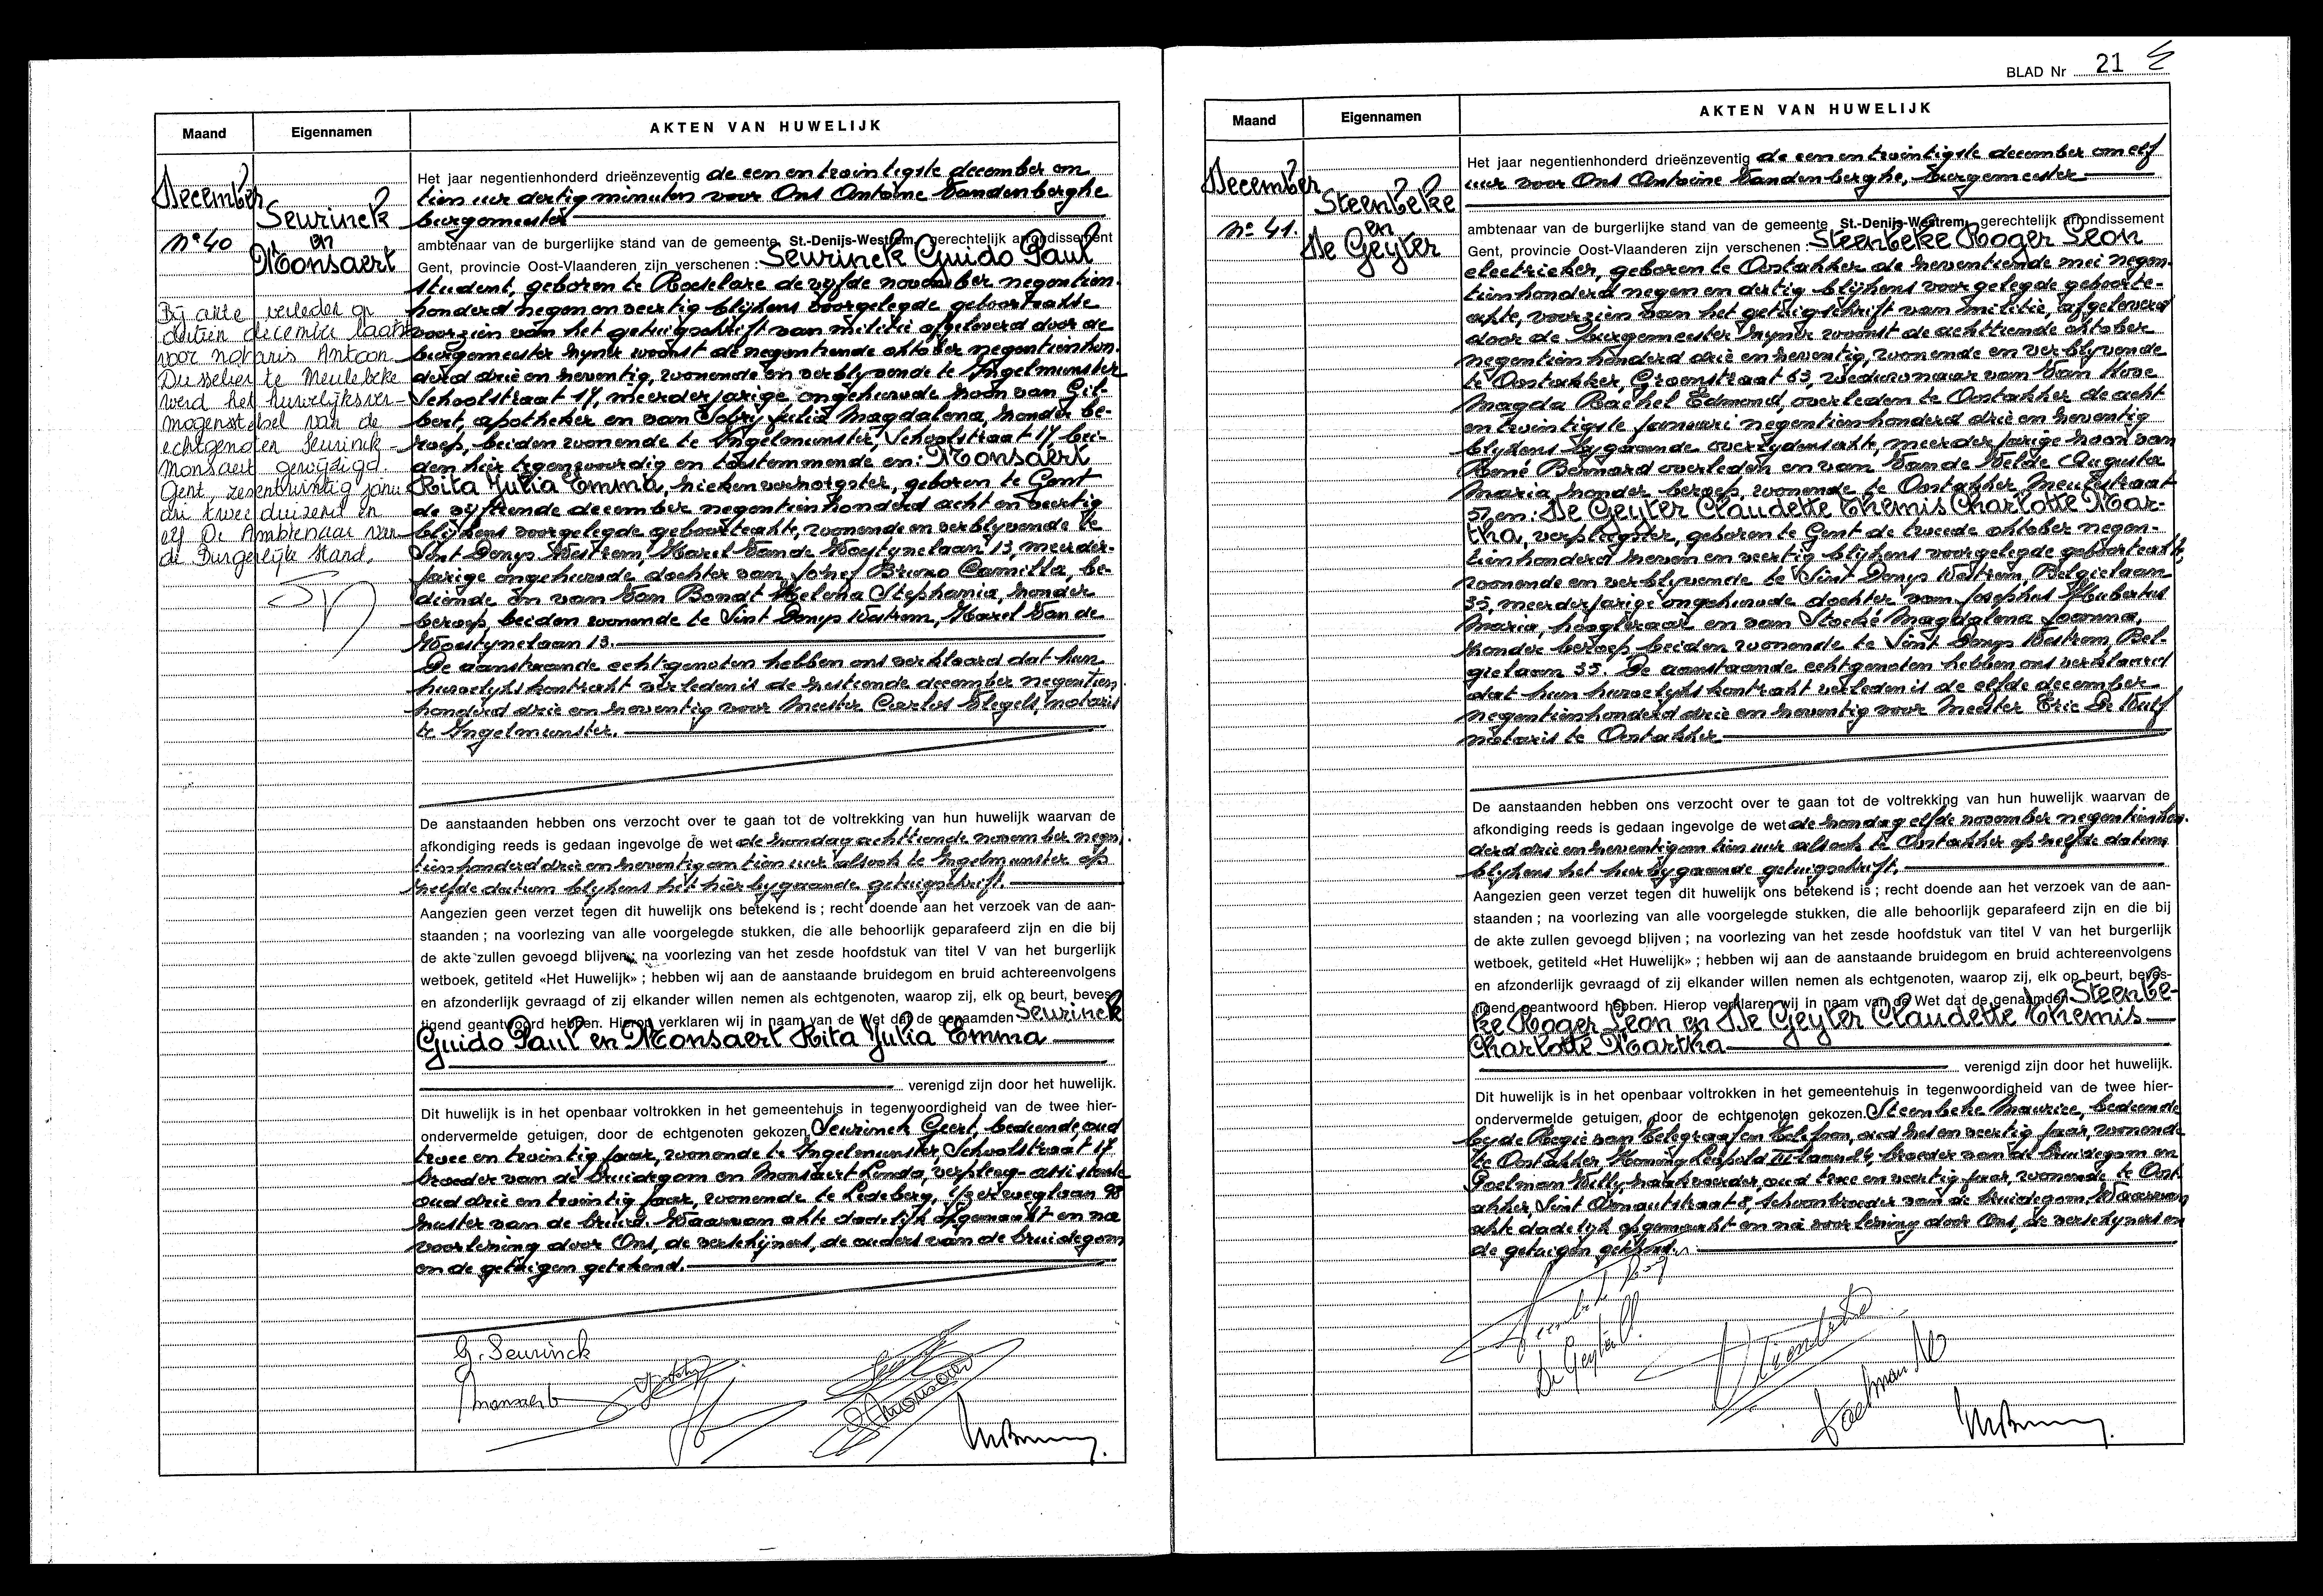 Maand
Eigennamen
AKTEN VAN HUWELIJK
December
N° 40
Seurinck
en
Monsaert
Bij akte verleden op
dertien december laatst
voor notaris Antoon
Dusselier te Meulebeke
werd het huwelijksver-
mogensstelsel van de
echtgenoten Seurinck -
Monsaert gewijzigd.
Gent, zesentwintig janu
ari tweeduizend en
elf De Ambtenaar van
de Burgerlijke stand,
Het jaar negentienhonderd drieënzeventig de een en twintigste december om
tien uur dertig minuten voor Ons Antoine Vandenberghe
burgemeester
ambtenaar van de burgerlijke stand van de gemeente St.-Denijs-Westrem, gerechtelijk arrondissement
Gent, provincie Oost-Vlaanderen zijn verschenen : Seurinck Guido Paul
student, geboren te Roeselare de vijfde november negentien-
honderd negen en veertig blijkens voorgelegde geboorteakte
voorzien van het getuigschrift van militie afgeleverd door de
burgemeester zijner woonst de negentiende oktober negentienhon-
derd drie en zeventig, wonende en verblijvende te Ingelmunster
Schoolstraat 17, meerderjarige ongehuwde zoon van Gil-
bert, apotheker en van Sobry Julia Magdalena, zonder be-
roep, beiden wonende te Ingelmunster, Schoolstraat 17, bei-
den hier tegenwoordig en toestemmende en: Monsaert
Rita Julia Emma, ziekenverzorgster, geboren te Gent
de vijftiende december negentienhonderd acht en veertig
blijkens voorgelegde geboorteakte, wonende en verblijvende te
Sint Denijs Westrem, Karel Van de Woestynelaan 13, meerder-
jarige ongehuwde dochter van Jozef Bruno Camilla, be-
diende en van Van Bondt Helena Stephania, zonder
beroep, beiden wonende te Sint Denijs Westrem, Karel Van de
Woestynelaan 13.
De aanstaande echtgenoten hebben ons verklaard dat hun
huwelijkskontrakt verleden is de zestiende december negentien
honderd drie en zeventig voor Meester Carlos Slegels, notaris
te Ingelmunster.
De aanstaanden hebben ons verzocht over te gaan tot de voltrekking van hun huwelijk waarvan de
afkondiging reeds is gedaan ingevolge de wet de zondag achttiende november negen-
tienhonderd drie en zeventig om tien uur alsook te Ingelmunster op
zelfde datum blijkens het hierbijgaande getuigschrift.
Aangezien geen verzet tegen dit huwelijk ons betekend is ; recht doende aan het verzoek van de aan-
staanden ; na voorlezing van alle voorgelegde stukken, die alle behoorlijk geparafeerd zijn en die bij
de akte zullen gevoegd blijven ; na voorlezing van het zesde hoofdstuk van titel V van het burgerlijk
wetboek, getiteld «Het Huwelijk» ; hebben wij aan de aanstaande bruidegom en bruid achtereenvolgens
en afzonderlijk gevraagd of zij elkander willen nemen als echtgenoten, waarop zij, elk op beurt, beves-
tigend geantwoord hebben. Hierop verklaren wij in naam van de Wet dat de genaamden Seurinck
Guido Paul en Monsaert Rita Julia Emma
verenigd zijn door het huwelijk.
Dit huwelijk is in het openbaar voltrokken in het gemeentehuis in tegenwoordigheid van de twee hier-
ondervermelde getuigen, door de echtgenoten gekozen Seurinck Geert, bediende, oud
twee en twintig jaar, wonende te Ingelmunster Schoolstraat 17
broeder van de bruidegom en Monsaert Linda, verpleeg-assistente
oud drie en twintig jaar, wonende te Ledeberg, Ijzerweglaan 98
zuster van de bruid. Waarvan akte dadelijk opgemaakt en na
voorlezing door Ons, de verschijners, de ouders van de bruidegom
en de getuigen getekend.
G. Seurinck
Monsaert
BLAD Nr 21
Maand
Eigennamen
AKTEN VAN HUWELIJK
December
N° 41.
Steenbeke
en
De Geyter
Het jaar negentienhonderd drieënzeventig de een en twintigste december om elf
uur voor Ons Antoine Vandenberghe, burgemeester
ambtenaar van de burgerlijke stand van de gemeente St.-Denijs-Westrem, gerechtelijk arrondissement
Gent, provincie Oost-Vlaanderen zijn verschenen : Steenbeke Roger Leon
electrieker, geboren te Oostakker de zeventiende mei negen-
tienhonderd negen en dertig blijkens voorgelegde geboorte-
akte, voorzien van het getuigschrift van militie, afgeleverd
door de burgemeester zijner woonst de achttiende oktober
negentienhonderd drie en zeventig, wonende en verblijvende
te Oostakker, Groenstraat 63, weduwnaar van Van Hove
Magda Rachel Edmond, overleden te Oostakker de acht
en twintigste januari negentienhonderd drie en zeventig
blijkens bijgaande overlijdensakte, meerderjarige zoon van
René Bernard overleden en van Van de Velde Augusta
Maria, zonder beroep, wonende te Oostakker Meulestraat
57 en: De Geyter Claudette Themis Charlotte Mar-
tha, verpleegster, geboren te Gent de tweede oktober negen-
tienhonderd zeven en veertig blijkens voorgelegde geboorteakte,
wonende en verblijvende te Sint Denijs Westrem, Belgielaan
35, meerderjarige ongehuwde dochter van Josephus Hubertus
Maria, hoogleraar en van Stocké Magdalena Joanna,
zonder beroep beiden wonende te Sint Denijs Westrem, Bel-
gielaan 35. De aanstaande echtgenoten hebben ons verklaard
dat hun huwelijkskontrakt verleden is de elfde december
negentienhonderd drie en zeventig voor Meester Eric De Wulf
notaris te Oostakker
De aanstaanden hebben ons verzocht over te gaan tot de voltrekking van hun huwelijk waarvan de
afkondiging reeds is gedaan ingevolge de wet de zondag elfde november negentienhon-
derd drie en zeventig om tien uur alsook te Oostakker op zelfde datum
blijkens het hierbijgaande getuigschrift.
Aangezien geen verzet tegen dit huwelijk ons betekend is ; recht doende aan het verzoek van de aan-
staanden ; na voorlezing van alle voorgelegde stukken, die alle behoorlijk geparafeerd zijn en die bij
de akte zullen gevoegd blijven ; na voorlezing van het zesde hoofdstuk van titel V van het burgerlijk
wetboek, getiteld «Het Huwelijk» ; hebben wij aan de aanstaande bruidegom en bruid achtereenvolgens
en afzonderlijk gevraagd of zij elkander willen nemen als echtgenoten, waarop zij, elk op beurt, beves-
tigend geantwoord hebben. Hierop verklaren wij in naam van de Wet dat de genaamden Steenbe-
ke Roger Leon en De Geyter Claudette Themis
Charlotte Martha
verenigd zijn door het huwelijk.
Dit huwelijk is in het openbaar voltrokken in het gemeentehuis in tegenwoordigheid van de twee hier-
ondervermelde getuigen, door de echtgenoten gekozen Steenbeke Maurice, bediende
bij de Regie van Telegraaf en Telefoon, oud zes en veertig jaar, wonende
te Oostakker Koning Leopold III laan 24, broeder van de bruidegom en
Poelman Willy, zaakvoerder, oud twee en veertig jaar, wonende te Oost-
akker, Sint Arnoutstraat 8, schoonbroeder van de bruidegom. Waarvan
akte dadelijk opgemaakt en na voorlezing door Ons, de verschijners en
de getuigen getekend.
De Geyter
Poelman